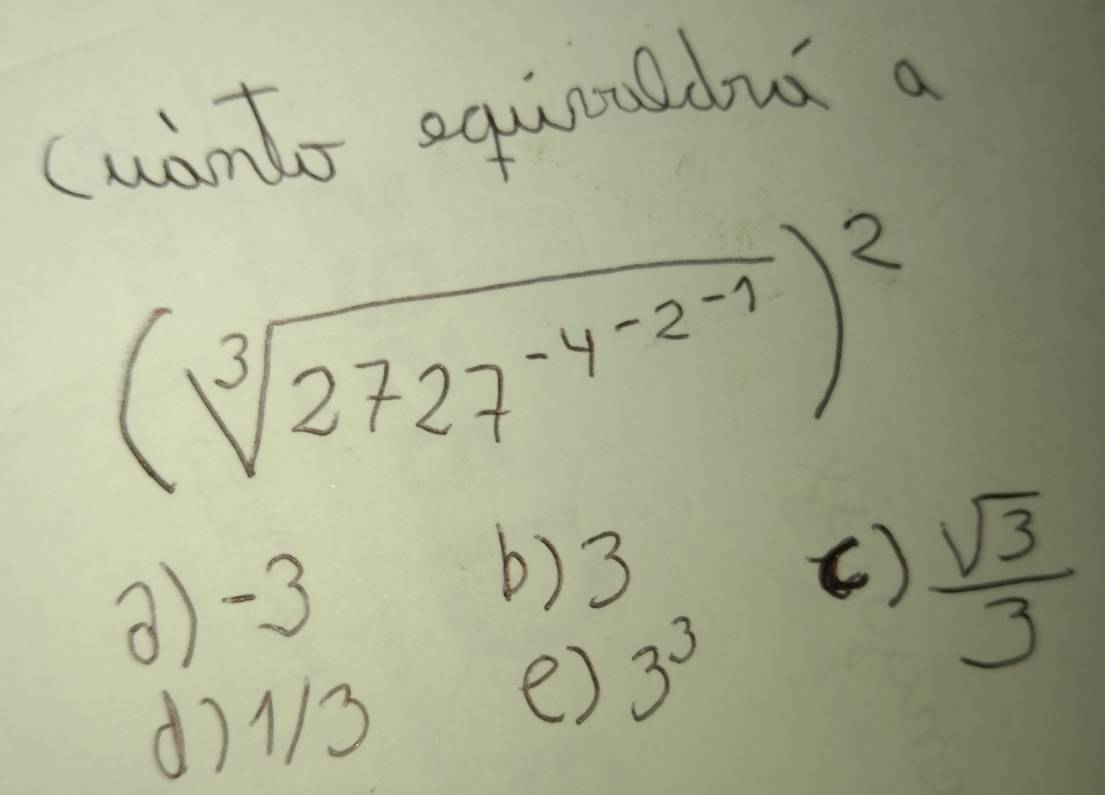 Cuànto equivaldrá a
(∛2727^-4^-2^-1)^2
a) -3 b) 3 c) √3/3
d) 1/3 e) 3^3